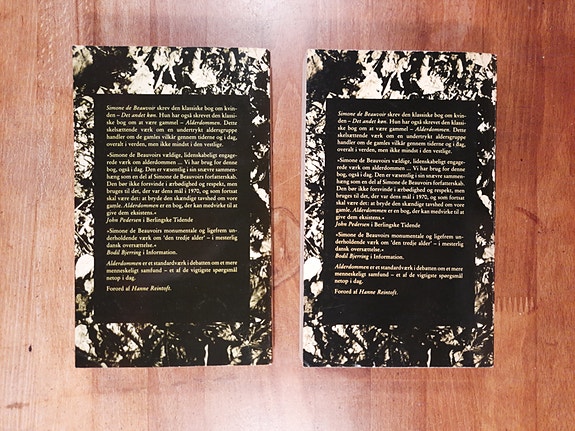 Simone de Beauvoir skrev den klassiske bog om kvin-
den – Det andet køn. Hun har også skrevet den klassi-
ske bog om at være gammel – Alderdommen. Dette
skelsættende værk om en undertrykt aldersgruppe
handler om de gamles vilkår gennem tiderne og i dag,
overalt i verden, men ikke mindst i den vestlige.
»Simone de Beauvoirs vældige, lidenskabeligt engage-
rede værk om alderdommen ... Vi har brug for denne
bog, også i dag. Den er væsentlig i sin snævre sammen-
hæng som en del af Simone de Beauvoirs forfatterskab.
Den bør ikke forsvinde i ærbødighed og respekt, men
bruges til det, der var dens mål i 1970, og som fortsat
skal være det: at bryde den skændige tavshed om vore
gamle. Alderdommen er en bog, der kan medvirke til at
give dem eksistens.«
John Pedersen i Berlingske Tidende
»Simone de Beauvoirs monumentale og ligefrem un-
derholdende værk om 'den tredje alder' – i mesterlig
dansk oversættelse.«
Bodil Bjerring i Information.
Alderdommen er et standardværk i debatten om et mere
menneskeligt samfund – et af de vigtigste spørgsmål
netop i dag.
Forord af Hanne Reintoft.
Simone de Beauvoir skrev den klassiske bog om kvin-
den – Det andet køn. Hun har også skrevet den klassi-
ske bog om at være gammel – Alderdommen. Dette
skelsættende værk om en undertrykt aldersgruppe
handler om de gamles vilkår gennem tiderne og i dag,
overalt i verden, men ikke mindst i den vestlige.
»Simone de Beauvoirs vældige, lidenskabeligt engage-
rede værk om alderdommen ... Vi har brug for denne
bog, også i dag. Den er væsentlig i sin snævre sammen-
hæng som en del af Simone de Beauvoirs forfatterskab.
Den bør ikke forsvinde i ærbødighed og respekt, men
bruges til det, der var dens mål i 1970, og som fortsat
skal være det: at bryde den skændige tavshed om vore
gamle. Alderdommen er en bog, der kan medvirke til at
give dem eksistens.«
John Pedersen i Berlingske Tidende
»Simone de Beauvoirs monumentale og ligefrem un-
derholdende værk om 'den tredje alder' – i mesterlig
dansk oversættelse.«
Bodil Bjerring i Information.
Alderdommen er et standardværk i debatten om et mere
menneskeligt samfund – et af de vigtigste spørgsmål
netop i dag.
Forord af Hanne Reintoft.